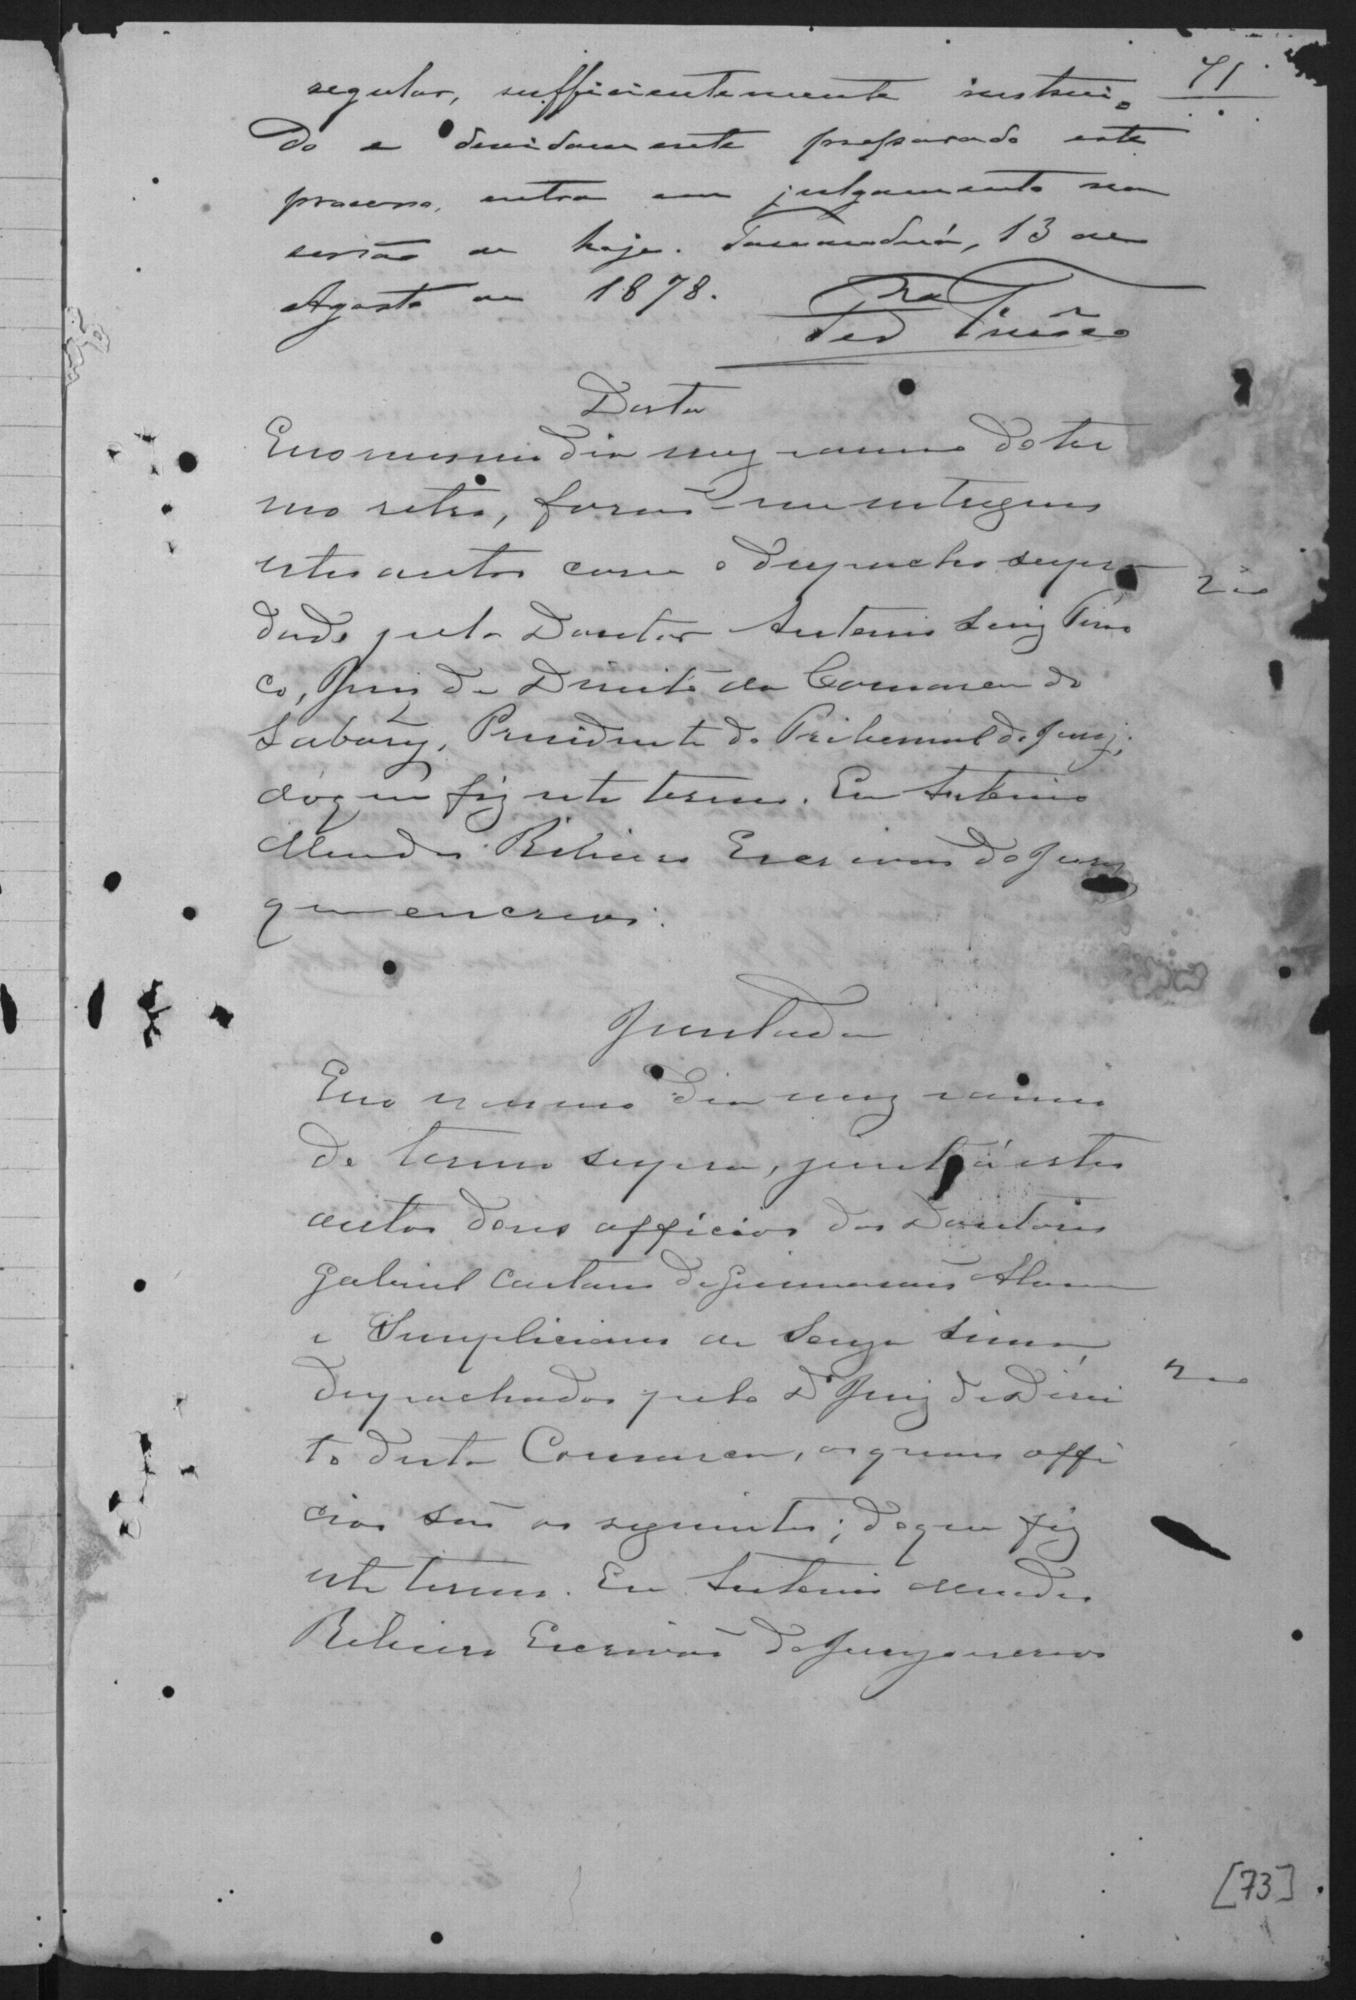 71
regular, sufficientemente instrui-
do e devidamente preparado este
processo, entra em julgamento na
sessão de hoje. Tamanduá, 13 de
Agosto de 1878.
Tinôco
Data
Eno mesmo dia mez e anno do ter
mo retro, forão-me entregues
estes autos com o despacho supra
dado pelo Doutor Antonio Luiz Tino
co, Juiz de Direito da Comarca do
Sabará, Presidente do Tribunal do Jury;
do que fiz este termo. Eu Antonio
Mendes Ribeiro Escrivão do Jury
que escrevi.
Juntada
Eno mesmo dia mez e anno
do termo supra, junto á estes
autos dous officios dos Doutores
Gabriel Caetano de Guimarães
e Simpliciano de Souza Lima,
despachados pelo Dr Juiz de Direi
to desta Comarca, os quaes offi
cios são os seguintes; do que fiz
este termo. Eu Antonio Mendes
Ribeiro Escrivão do Jury escrevi
[73]